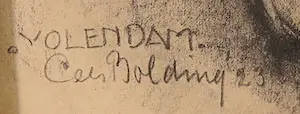 VOLENDAM.
Cees Bolding '23